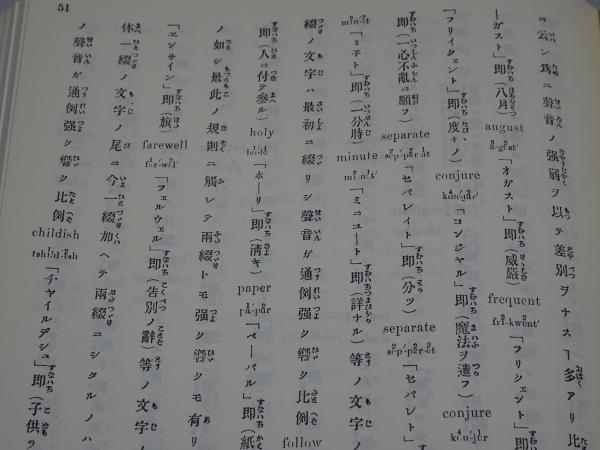 51
ニ云ン爲ニ聲音ノ强弱ヲ以テ差別ヲナスヿ多アリ比
ーガスト」即(八月) august 「オガスト」即(威嚴) frequent 「フリクェント」
「フリイクェント」即(度々ノ) conjure 「コンジャル」即(魔法ヲ遣フ) conjure
即(一心不亂ニ願フ) separate 「セパレイト」即(分ツ) separate 「セパレト」
「ミニト」即(一分時) minute 「ミニユート」即(詳ナル)等ノ文字ノ
綴ノ文字ハ最初ニ綴リシ聲音ガ通例强ク響ク比例 follow
即(人ニ付テ參ル) holy 「ホーリ」即(淸キ) paper 「ペーパル」即(紙
ノ如シ最此ノ規則ニ觸レテ兩綴トモ强ク響クモ有リ
「エンサイン」即(旗) farewell 「フェルウェル」即(告別ノ辭)等ノ文字ノ
体一綴ノ文字ノ尾ニ今一綴加ヘテ兩綴ニシタルノハ
ノ聲音ガ通例强ク響ク比例 childish 「チャイルデシュ」即(子供ラ